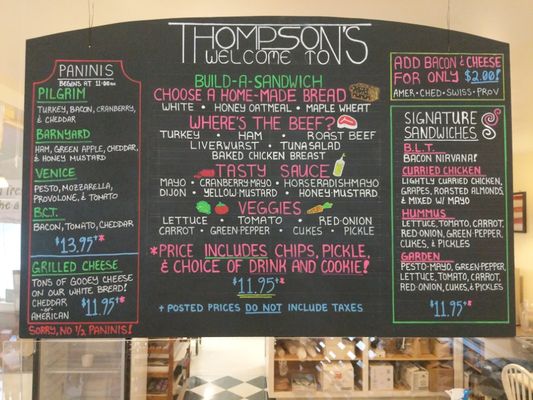 WELCOME TO
THOMPSON'S
PANINIS
BEGINS AT 11:00am
PILGRIM
TURKEY, BACON, CRANBERRY,
& CHEDDAR
BARNYARD
HAM, GREEN APPLE, CHEDDAR,
& HONEY MUSTARD
VENICE
PESTO, MOZZARELLA,
PROVOLONE, & TOMATO
B.C.T.
BACON, TOMATO, CHEDDAR
$13.95+*
GRILLED CHEESE
TONS OF GOOEY CHEESE
ON OUR WHITE BREAD!
CHEDDAR
-or-
AMERICAN
$11.95+*
SORRY, NO 1/2 PANINIS!
BUILD-A-SANDWICH
CHOOSE A HOME-MADE BREAD
WHITE • HONEY OATMEAL • MAPLE WHEAT
WHERE'S THE BEEF?
TURKEY • HAM • ROAST BEEF
LIVERWURST • TUNA SALAD
BAKED CHICKEN BREAST
TASTY SAUCE
MAYO • CRANBERRY MAYO • HORSERADISH MAYO
DIJON • YELLOW MUSTARD • HONEY-MUSTARD
VEGGIES
LETTUCE • TOMATO • RED-ONION
CARROT • GREEN-PEPPER • CUKES • PICKLE
*PRICE INCLUDES CHIPS, PICKLE,
& CHOICE OF DRINK AND COOKIE!
$11.95+*
+ POSTED PRICES DO NOT INCLUDE TAXES
ADD BACON & CHEESE
FOR ONLY $2.00!
AMER • CHED • SWISS • PROV
SIGNATURE
SANDWICHES
B.L.T.
BACON NIRVANA!
CURRIED CHICKEN
LIGHTLY CURRIED CHICKEN,
GRAPES, ROASTED ALMONDS,
& MIXED W/ MAYO
HUMMUS
LETTUCE, TOMATO, CARROT,
RED ONION, GREEN-PEPPER,
CUKES, & PICKLES
GARDEN
PESTO-MAYO, GREEN-PEPPER,
LETTUCE, TOMATO, CARROT,
RED-ONION, CUKES, & PICKLES
$11.95+*